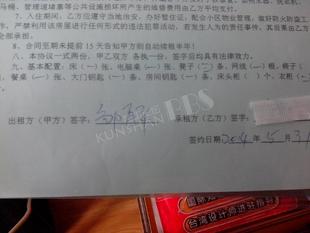 马桶、管道堵塞等公共设施损坏所产生的维修费用由乙方平均支付。
7、入住后，乙方应遵守当地治安，办好暂住证，配合小区物业管理，做好防火防盗工
作，严禁利用该房屋进行任何形式的违法犯罪活动，若发生人为的责任事故，其后果由乙方
全部承担。
8、合同至期未提前15天告知甲方则自动续租半年！
八、本协议一式两份，甲乙双方各执一份，签字后均具有法律效力。
九、基本配置：床（一）张、电脑桌（一）张、凳子（二）条、网线（一）根、椅子（
餐桌（ ）张、大门钥匙（一）条、房间钥匙（一）条、床头柜（ ）个，衣柜（
出租方（甲方）签字： 承租方（乙方）签字：
签约日期2014年5月31
KUNSHAN BBS
台湾设计师进驻指